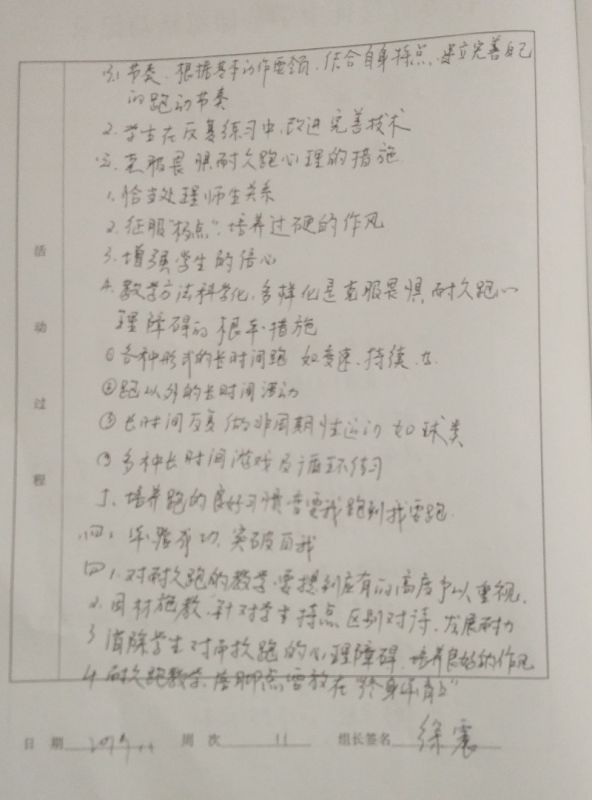 (3) 节奏、根据基本动作要领、结合自身特点、建立完善自己
的跑动节奏
2. 学生在反复练习中,改进完善技术
三、克服畏惧耐久跑心理的措施.
1. 恰当处理师生关系
2. 征服"极点",培养过硬的作风
3. 增强学生的信心
4. 教学方法科学化,多样化是克服畏惧耐久跑心
理障碍的根本措施
①各种形式的长时间跑 如变速、持续
②跑以外的长时间活动
③长时间反复做非周期性运动 如球类
④多种长时间游戏及循环练习
5、培养跑的良好习惯 变要我跑到我要跑.
四、体验成功,突破自我
四 1. 对耐久跑的教学,要提到应有的高度予以重视.
2. 因材施教,针对学生特点,区别对待,发展耐力
3 消除学生对耐久跑的心理障碍,培养良好的作风
4 耐久跑教学,落脚点要放在"终身体育上"
活动过程
日 期 周 次 11 组长签名 徐震